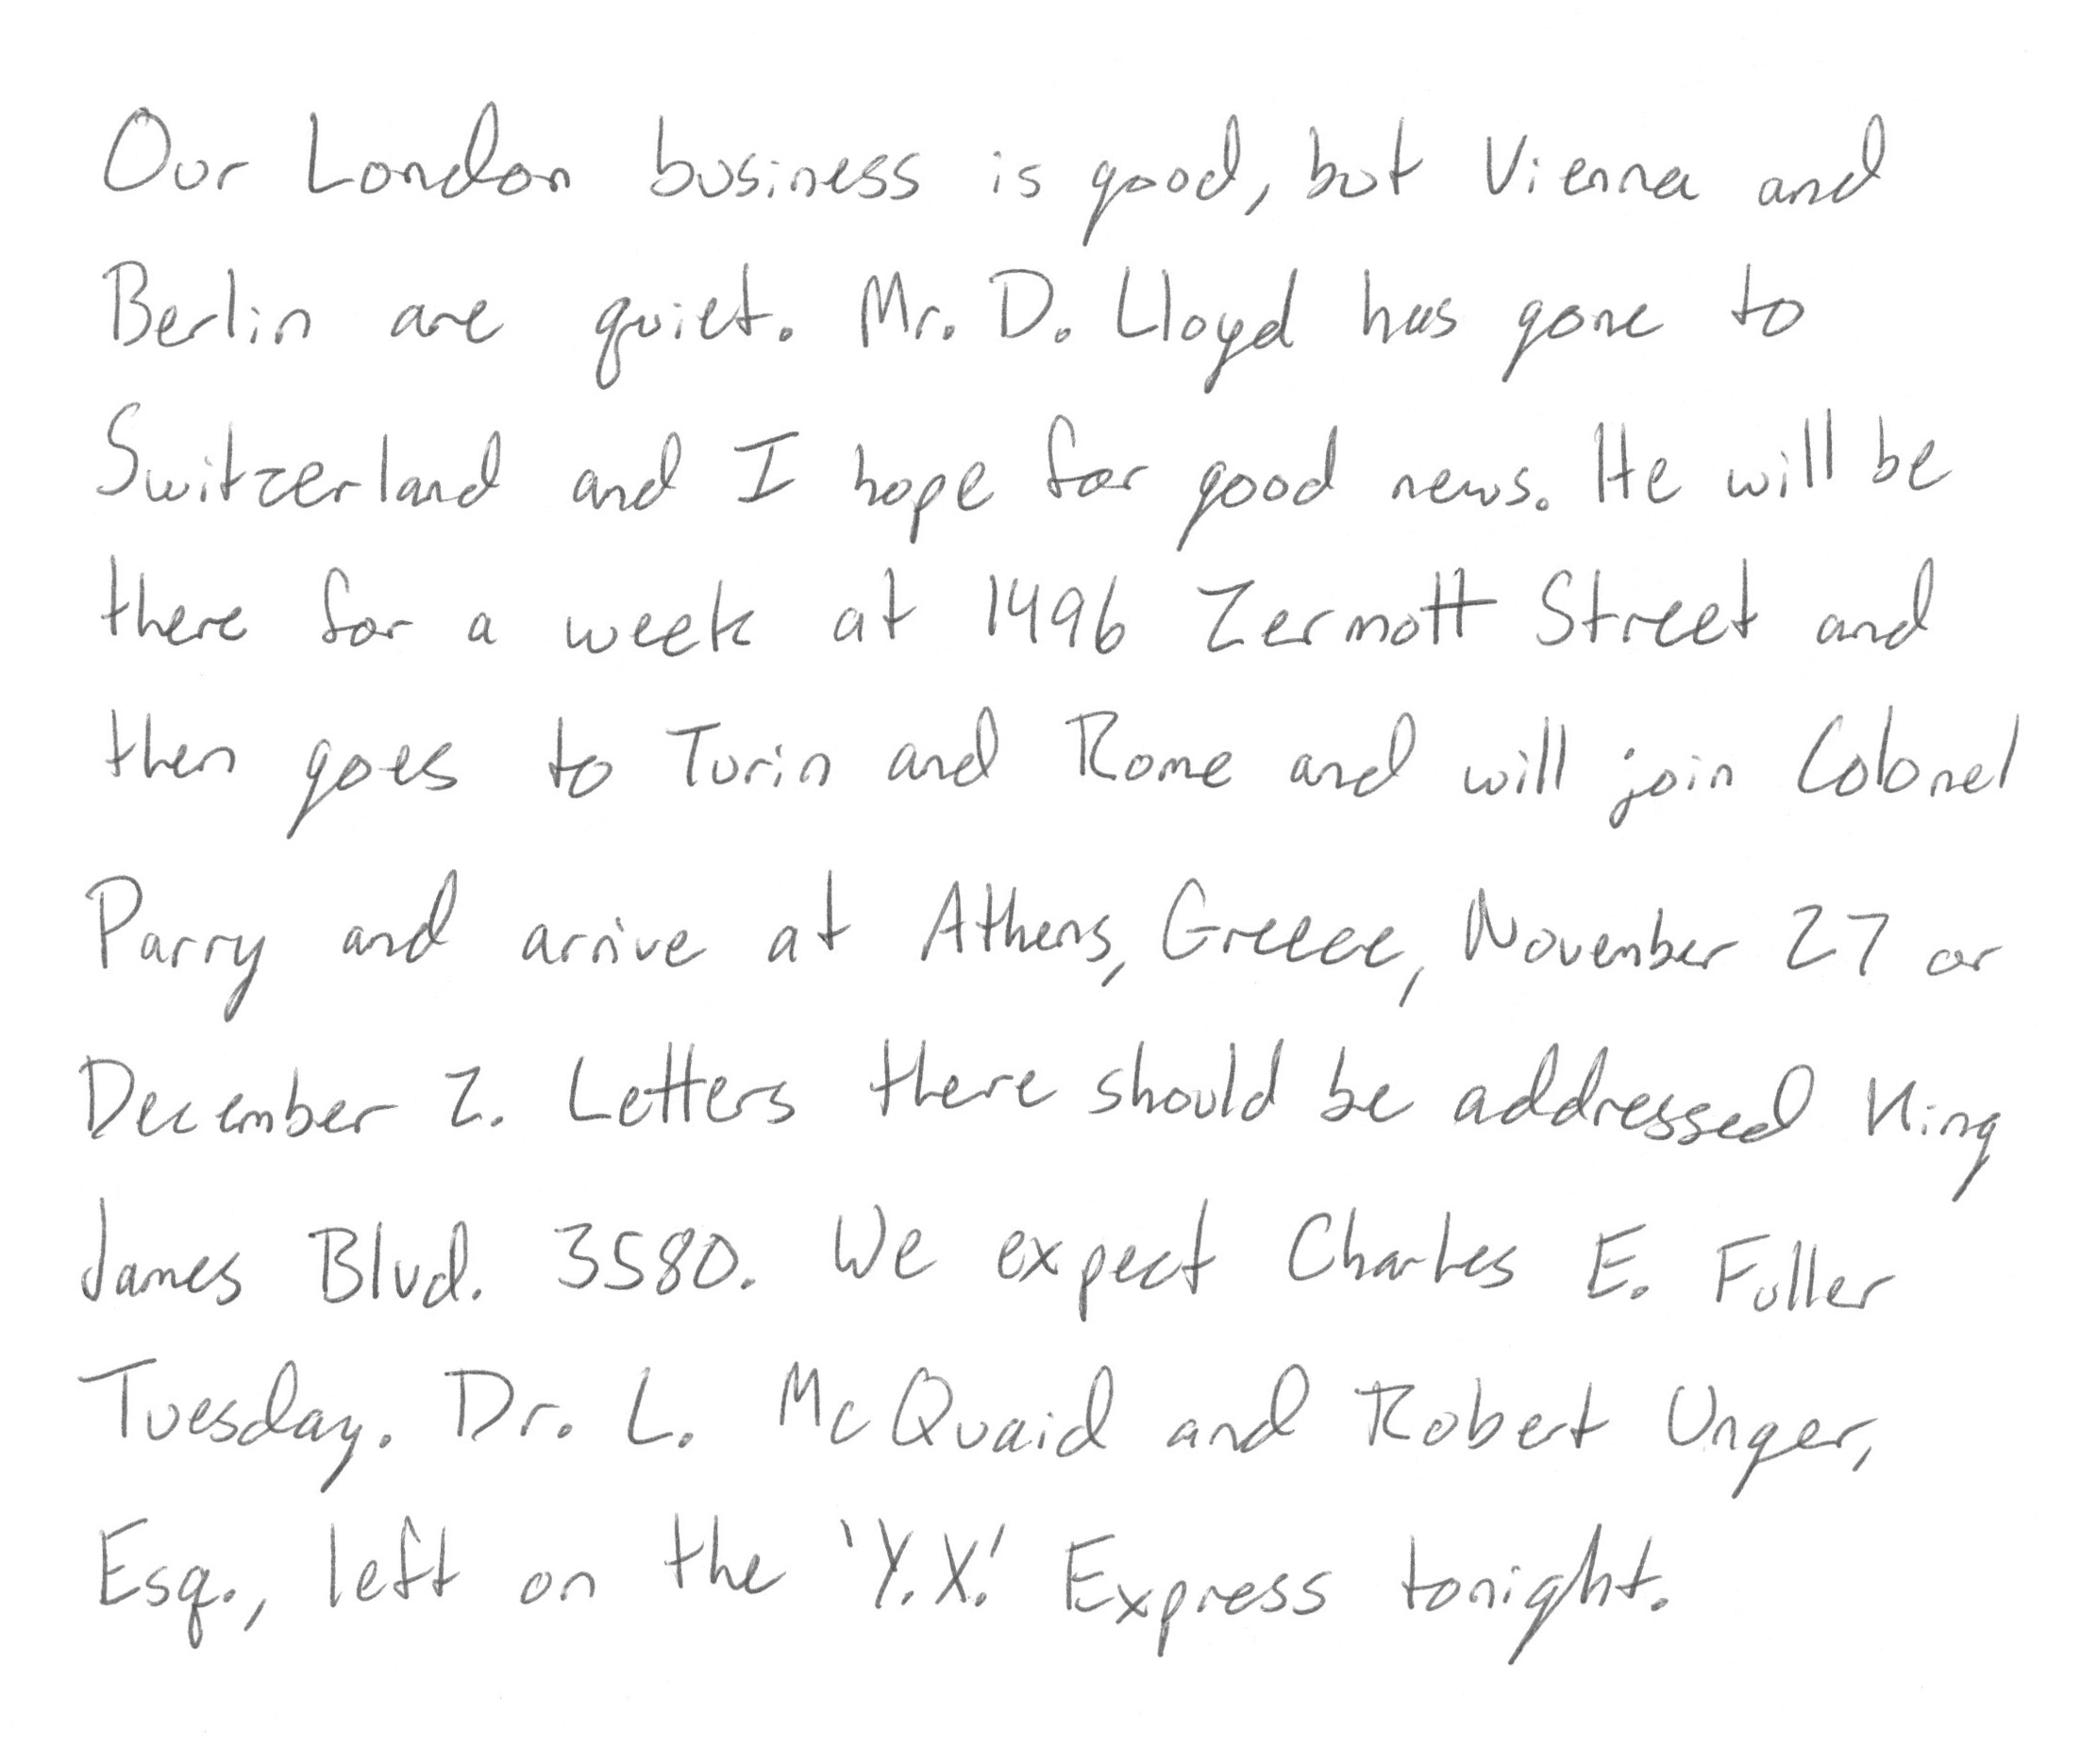 Our London business is good, but Vienna and
Berlin are quiet. Mr. D. Lloyd has gone to
Switzerland and I hope for good news. He will be
there for a week at 1496 Zermott Street and
then goes to Turin and Rome and will join Colonel
Parry and arrive at Athens, Greece, November 27 or
December 2. Letters there should be addressed King
James Blvd. 3580. We expect Charles E. Fuller
Tuesday. Dr. L. McQuaid and Robert Unger,
Esq., left on the 'Y.X.' Express tonight.